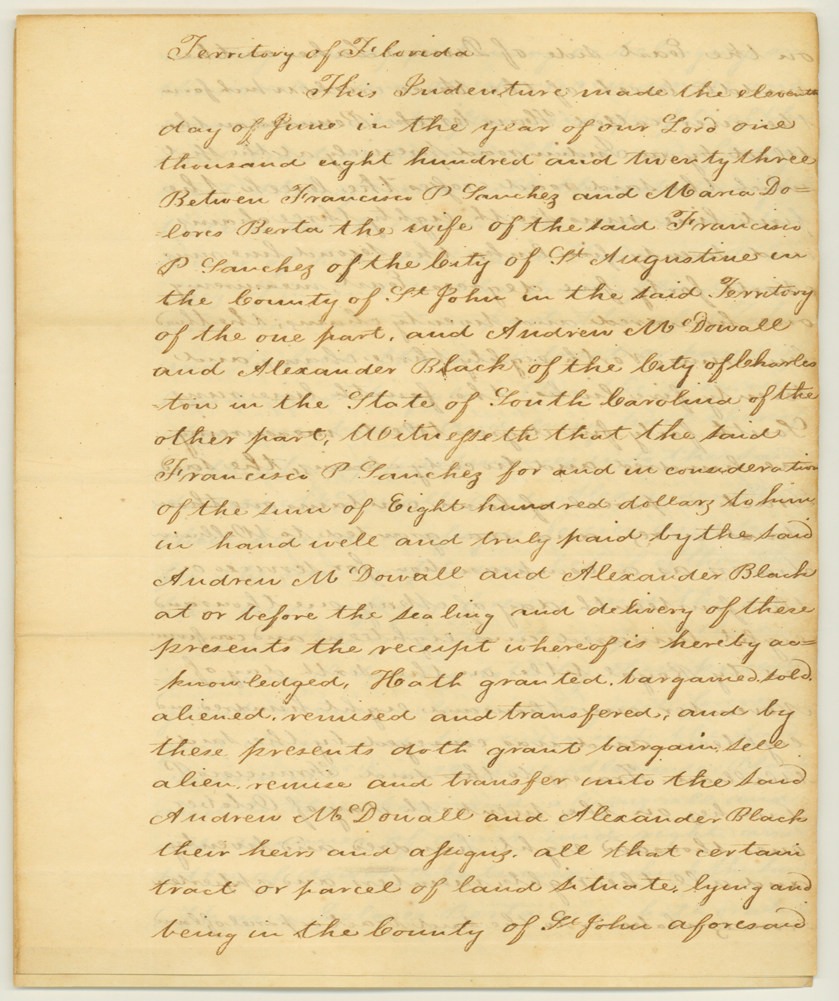 Territory of Florida
This Indenture made the eleventh
day of June in the year of our Lord one
thousand eight hundred and twenty three
Betwen Francisco P Sanchez and Maria Do=
-lores Berta the wife of the said Francisco
P Sanchez of the City of St Augustine in
the County of St John in the said Territory
of the one part, and Andrew McDowall
and Alexander Black of the City of Charles
-ton in the State of South Carolina of the
other part, Witnesseth that the said
Francisco P Sanchez for and in consideration
of the sum of Eight hundred dollars to him
in hand well and truly paid by the said
Andrew McDowall and Alexander Black
at or before the sealing and delivery of these
presents the receipt whereof is hereby ac=
knowledged, Hath granted. bargained. sold.
aliened. remised and transfered, and by
these presents doth grant bargain, sell
alien. remise and transfer unto the said
Andrew McDowall and Alexander Black
their heirs and assigns. all that certain
tract or parcel of land situate, lying and
being in the County of St John aforesaid